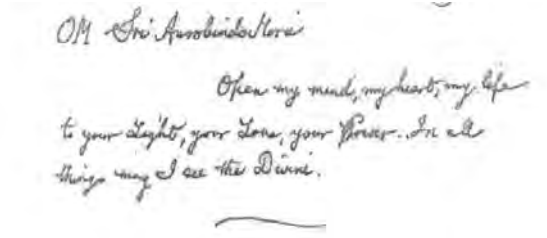 OM Sri Aurobindo Mira
Open my mind, my heart, my life
to your Light, your Love, your Power. In all
things may I see the Divine.